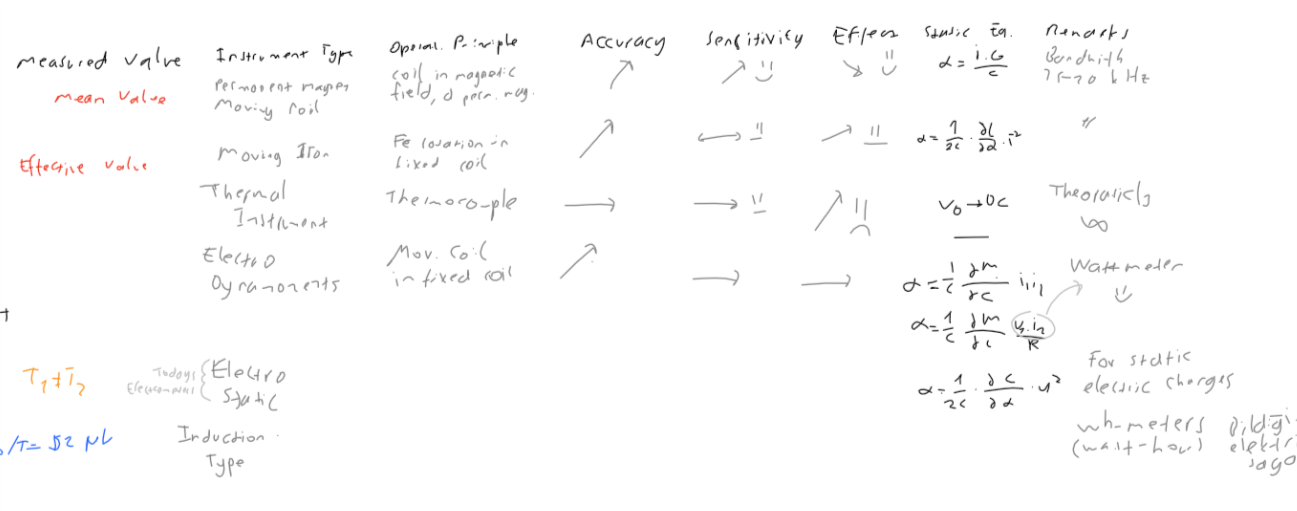 measured value Instrument Type Operat. Principle Accuracy Sensitivity Effect Static Eq. Remarks
mean value Permanent magnet Moving Coil coil in magnetic field, d perm. mag. ↗ ↗ ↘ α = i.G/c Bandwith 15-20 kHz
Effective value Moving Iron Fe location in fixed coil ↗ ↔ ↗ α = 1/2c · ∂L/∂α · i² "
Thermal Instrument Thermocouple → → ↗ V₀ → DC Theoraticly ∞
Electro Dynamoments Mov. Coil in fixed coil ↗ → → α = 1/c ∂m/∂c i₁i₂ Wattmeter
α = 1/c ∂m/∂c
T₁≠T₂ Todays Electro Static α = 1/2c · ∂c/∂α · u² For static electric charges
/T= 52 μV Induction Type wh-meters (watt-hour)